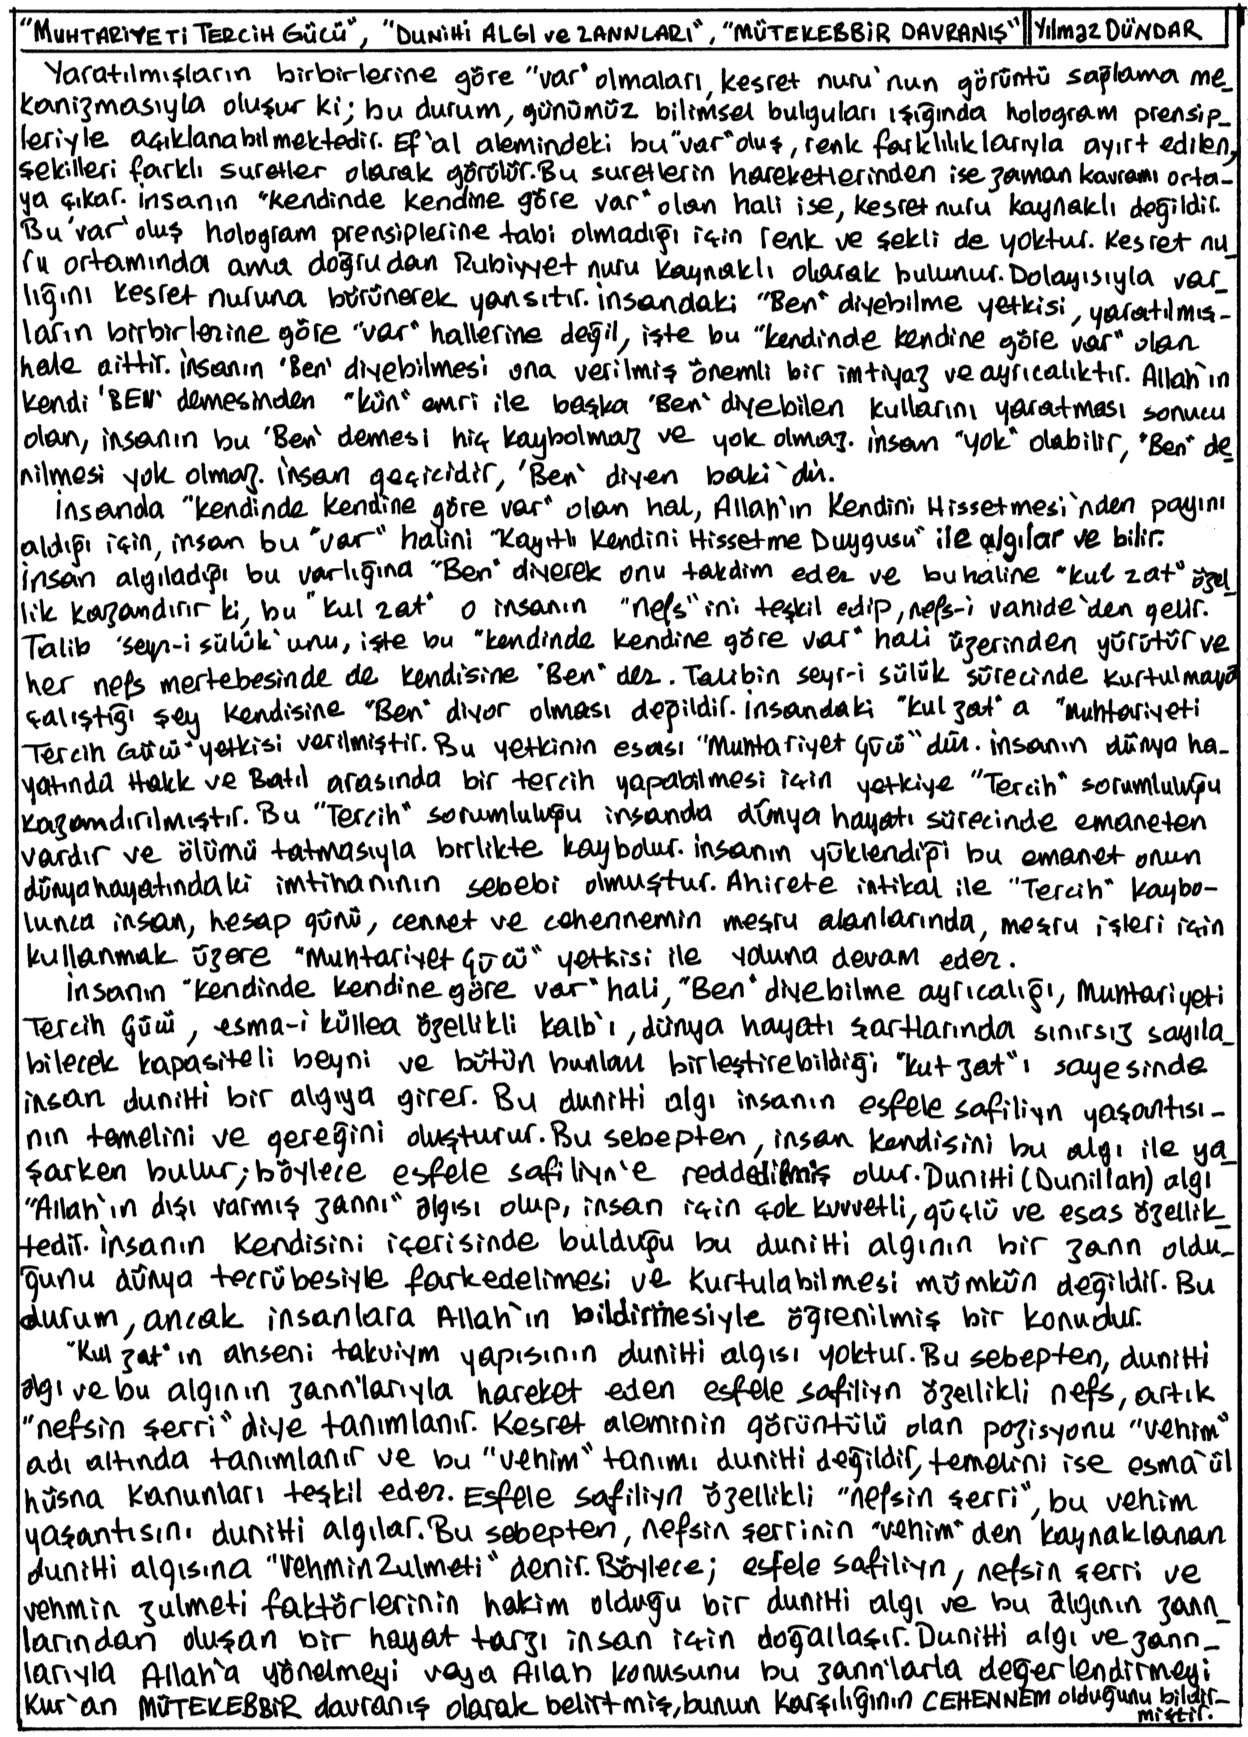 "MUHTARİYETİ TERCİH GÜCÜ", "DUNİHİ ALGI ve ZANNLARI", "MÜTEKEBBİR DAVRANIŞ" Yılmaz DÜNDAR
Yaratılmışların birbirlerine göre "var" olmaları, kesret nuru'nun görüntü sağlama me_
kanizmasıyla oluşur ki; bu durum, günümüz bilimsel bulguları ışığında hologram prensip_
leriyle açıklanabilmektedir. Ef'al alemindeki bu "var" oluş, renk farklılıklarıyla ayırt edilen,
şekilleri farklı suretler olarak görülür. Bu suretlerin hareketlerinden ise zaman kavramı orta-
ya çıkar. İnsanın "kendinde kendine göre var" olan hali ise, kesret nuru kaynaklı değildir.
Bu 'var' oluş hologram prensiplerine tabi olmadığı için renk ve şekli de yoktur. Kesret nu
ru ortamında ama doğrudan Rubiyyet nuru kaynaklı olarak bulunur. Dolayısıyla var_
lığını kesret nuruna bürünerek yansıtır. İnsandaki "Ben" diyebilme yetkisi, yaratılmış-
ların birbirlerine göre "var" hallerine değil, işte bu "kendinde kendine göre var" olan
hale aittir. İnsanın 'Ben' diyebilmesi ona verilmiş önemli bir imtiyaz ve ayrıcalıktır. Allah'ın
kendi 'BEN' demesinden "kün" emri ile başka 'Ben' diyebilen kullarını yaratması sonucu
olan, insanın bu 'Ben' demesi hiç kaybolmaz ve yok olmaz. İnsan "yok" olabilir, "Ben" de_
nilmesi yok olmaz. İnsan geçicidir, 'Ben' diyen baki'dir.
İnsanda "kendinde kendine göre var" olan hal, Allah'ın Kendini Hissetmesi'nden payını
aldığı için, insan bu "var" halini "Kayıtlı Kendini Hissetme Duygusu" ile algılar ve bilir.
İnsan algıladığı bu varlığına "Ben" diyerek onu takdim eder ve bu haline "kul zat" özel_
lik kazandırır ki, bu "kul zat" o insanın "nefs"ini teşkil edip, nefs-i vahide'den gelir.
Talib 'seyr-i sülûk'unu, işte bu "kendinde kendine göre var" hali üzerinden yürütür ve
her nefs mertebesinde de kendisine 'Ben' der. Talibin seyr-i sülûk sürecinde kurtulmaya
çalıştığı şey kendisine "Ben" diyor olması değildir. İnsandaki "kul zat"a "Muhtariyeti
Tercih Gücü" yetkisi verilmiştir. Bu yetkinin esası "Muhtariyet Gücü"dür. İnsanın dünya ha_
yatında Hakk ve Batıl arasında bir tercih yapabilmesi için yetkiye "Tercih" sorumluluğu
kazandırılmıştır. Bu "Tercih" sorumluluğu insanda dünya hayatı sürecinde emaneten
vardır ve ölümü tatmasıyla birlikte kaybolur. İnsanın yüklendiği bu emanet onun
dünya hayatındaki imtihanının sebebi olmuştur. Ahirete intikal ile "Tercih" kaybo-
lunca insan, hesap günü, cennet ve cehennemin meşru alanlarında, meşru işleri için
kullanmak üzere "Muhtariyet Gücü" yetkisi ile yoluna devam eder.
İnsanın "kendinde kendine göre var" hali, "Ben" diyebilme ayrıcalığı, Muhtariyeti
Tercih Gücü, esma-i küllea özellikli kalb'ı, dünya hayatı şartlarında sınırsız sayıla_
bilecek kapasiteli beyni ve bütün bunları birleştirebildiği "kul zat"ı sayesinde
insan dunihi bir algıya girer. Bu dunihi algı insanın esfele safiliyn yaşantısı-
nın temelini ve gereğini oluşturur. Bu sebepten, insan kendisini bu algı ile ya_
şarken bulur; böylece esfele safiliyn'e reddedilmiş olur. Dunihi (Dunillah) algı
"Allah'ın dışı varmış zannı" algısı olup, insan için çok kuvvetli, güçlü ve esas özellik_
tedir. İnsanın kendisini içerisinde bulduğu bu dunihi algının bir zann oldu_
ğunu dünya tecrübesiyle farkedelimesi ve kurtulabilmesi mümkün değildir. Bu
durum, ancak insanlara Allah'ın bildirmesiyle öğrenilmiş bir konudur.
"Kul zat"ın ahseni takviym yapısının dunihi algısı yoktur. Bu sebepten, dunihi
algı ve bu algının zann'larıyla hareket eden esfele safiliyn özellikli nefs, artık
"nefsin şerri" diye tanımlanır. Kesret aleminin görüntülü olan pozisyonu "vehim"
adı altında tanımlanır ve bu "vehim" tanımı dunihi değildir, temelini ise esma'ül
hüsna kanunları teşkil eder. Esfele safiliyn özellikli "nefsin şerri", bu vehim
yaşantısını dunihi algılar. Bu sebepten, nefsin şerrinin "vehim"den kaynaklanan
dunihi algısına "Vehmin Zulmeti" denir. Böylece; esfele safiliyn, nefsin şerri ve
vehmin zulmeti faktörlerinin hakim olduğu bir dunihi algı ve bu algının zann_
larından oluşan bir hayat tarzı insan için doğallaşır. Dunihi algı ve zann_
larıyla Allah'a yönelmeyi veya Allah konusunu bu zann'larla değerlendirmeyi
Kur'an MÜTEKEBBİR davranış olarak belirtmiş, bunun karşılığının CEHENNEM olduğunu bildir_
miştir.